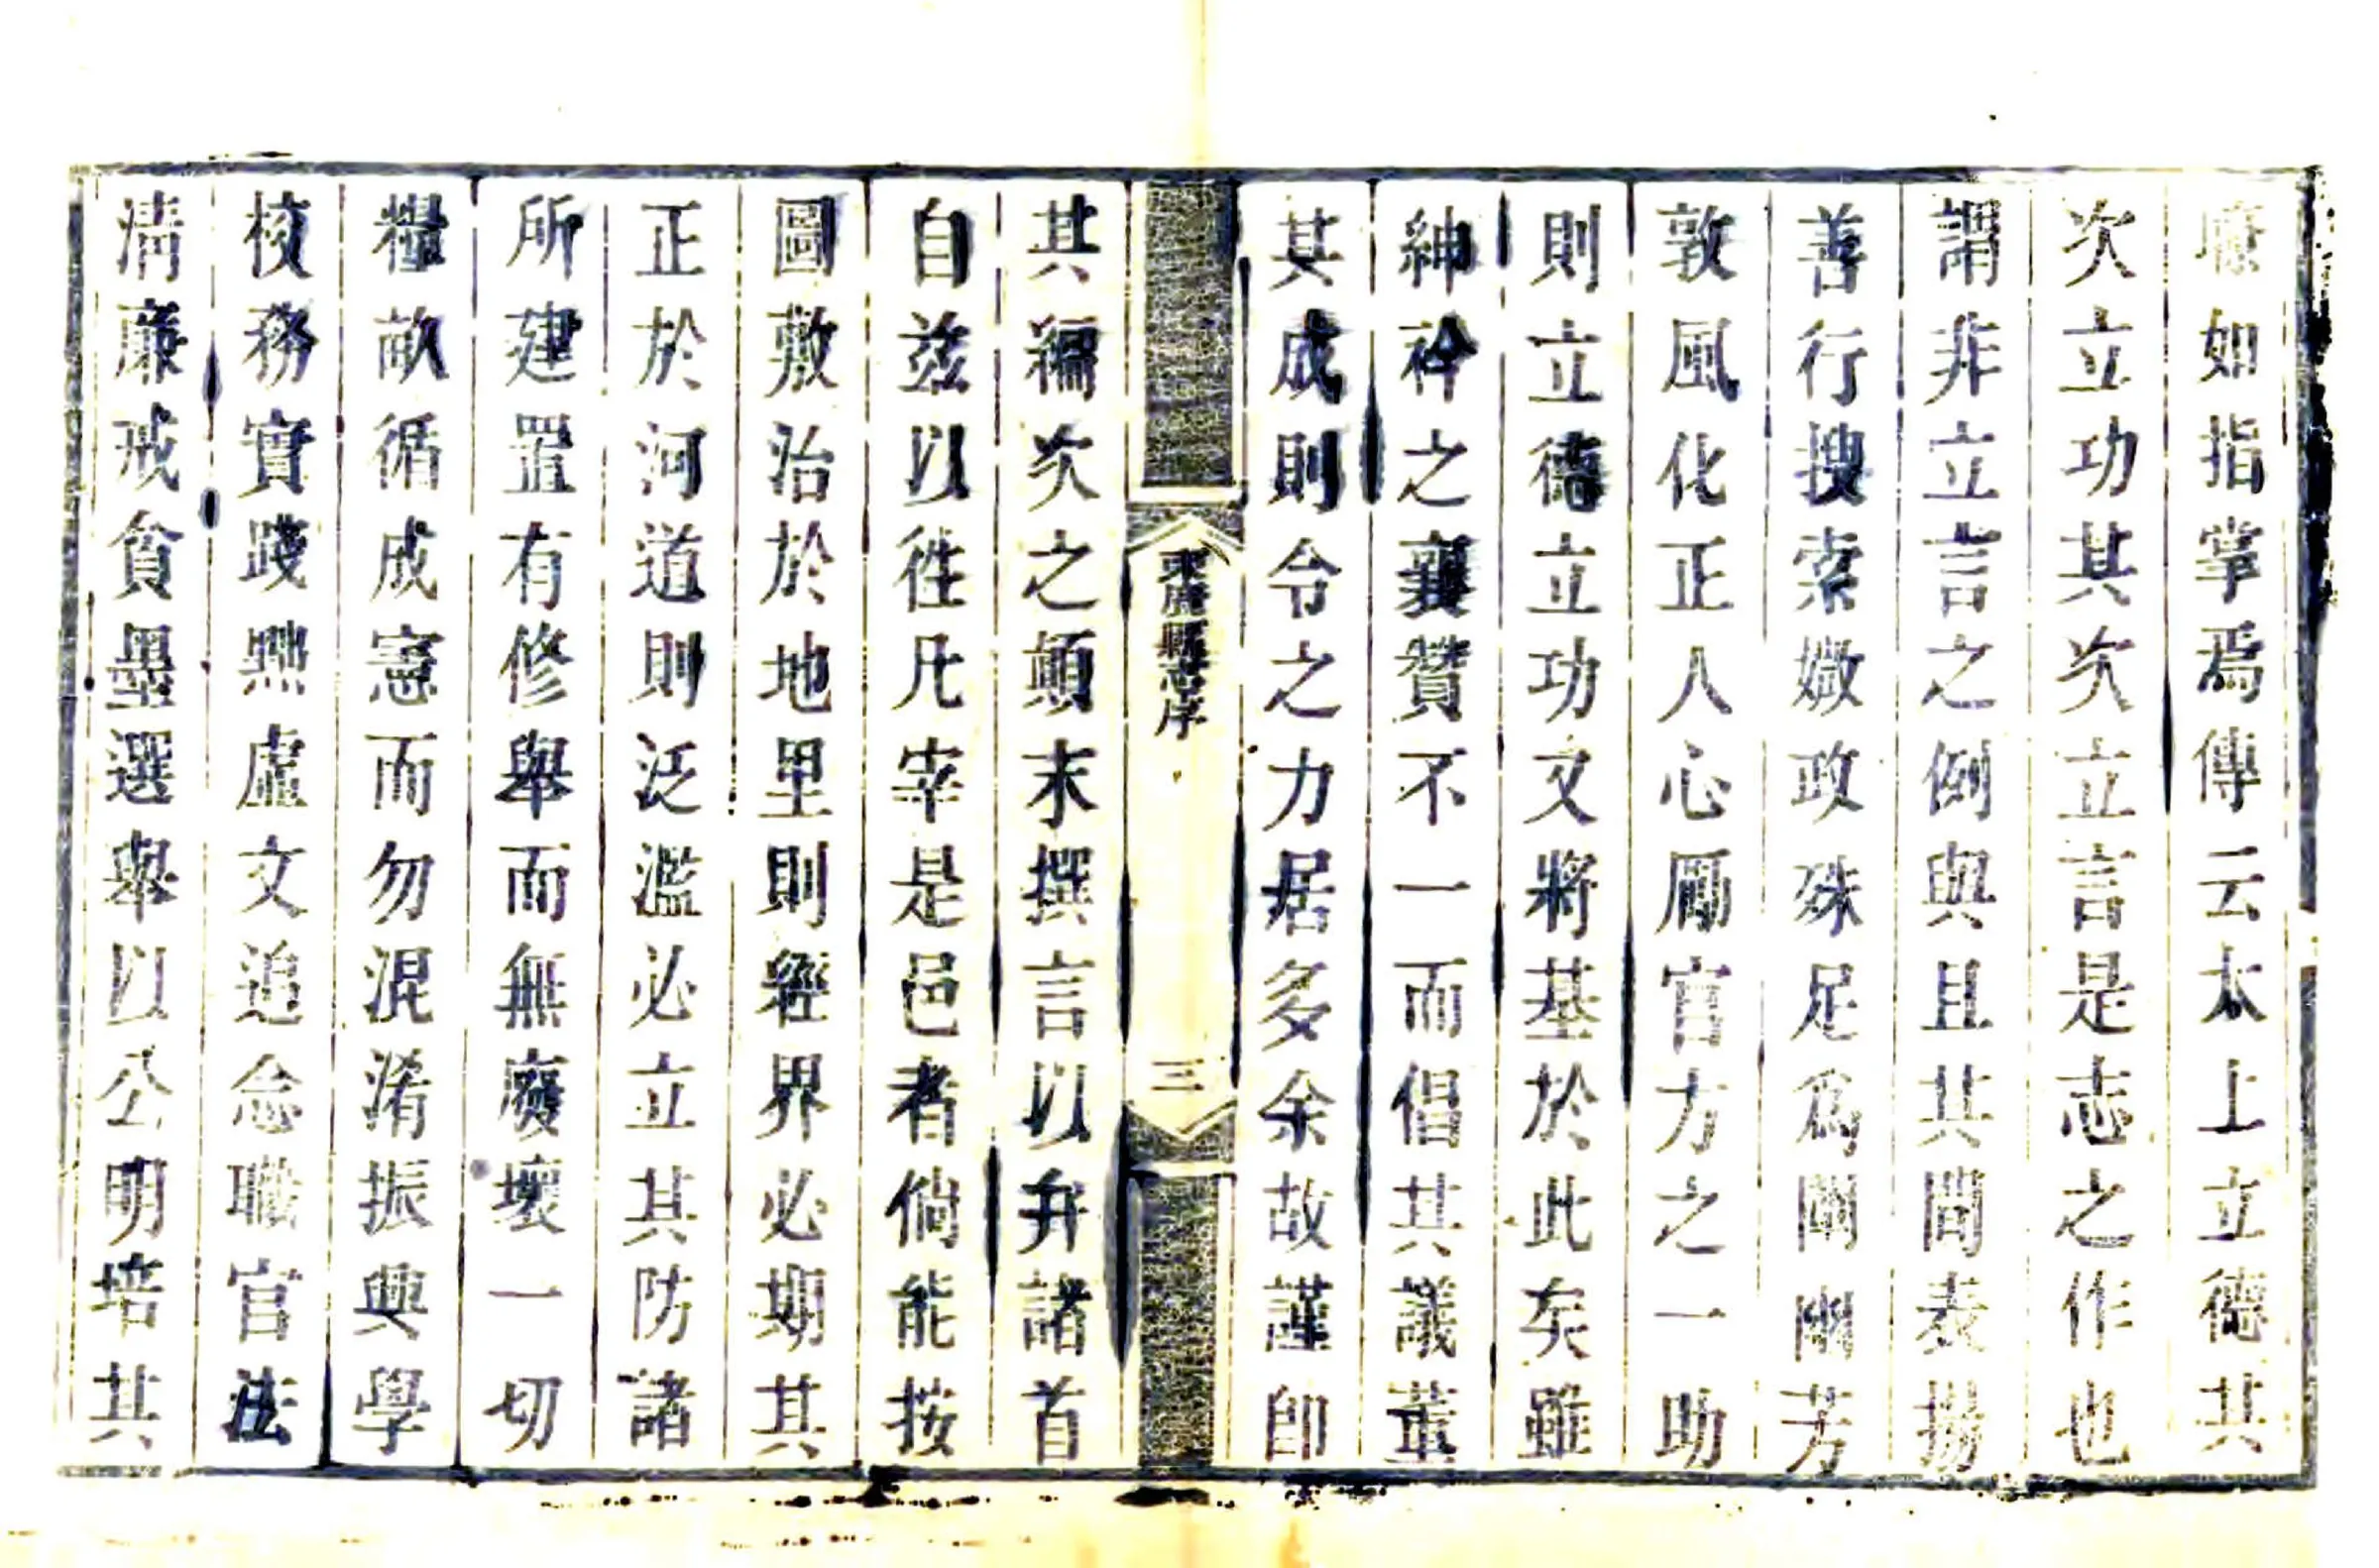 瞭如指掌焉傳云太上立德其
次立功其次立言是志之作也
謂非立言之例與且其間表揚
善行搜索媺政殊足爲闡幽芳
敦風化正人心勵官方之一助
則立德立功文將基於此矣雖
紳衿之襄贊不一而倡其議董
其成則令之力居多余故謹卽
東鹿縣志序
三
其編次之顛末撰言以弁諸首
自兹以徃凡宰是邑者倘能按
圖敷治於地里則經界必期其
正於河道則泛濫必立其防諸
所建置有修舉而無廢壞一切
糧畝循成憲而勿混淆振興學
校務實踐熙虛文追念職官法
清廉戒貪墨選舉以公明培其